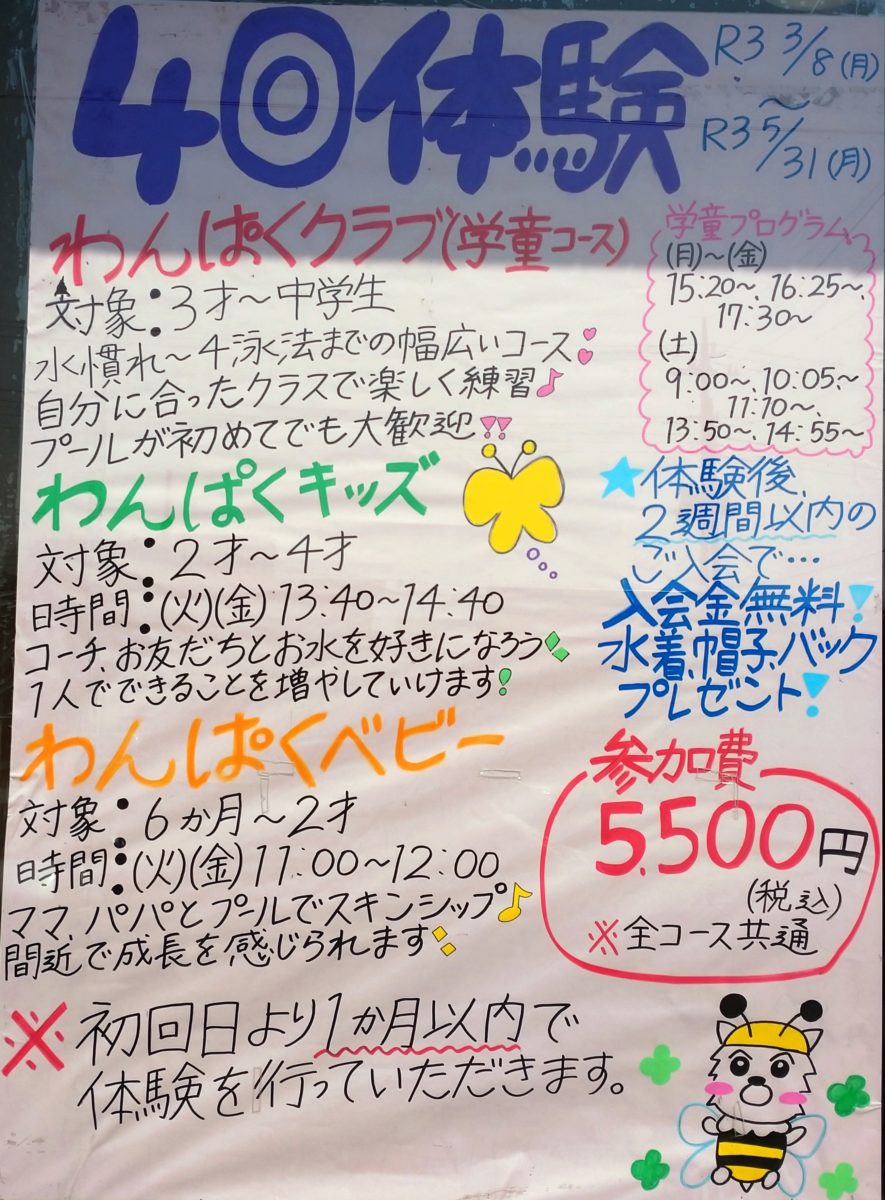 4回体験
R3 3/8(月)
～
R3 5/31(月)
わんぱくクラブ(学童コース)
対象:3才～中学生
水慣れ～4泳法までの幅広いコース
自分に合ったクラスで楽しく練習♪
プールが初めてでも大歓迎!!
学童プログラム
(月)～(金)
15:20～、16:25～、
17:30～
(土)
9:00～、10:05～
11:10～、
13:50～、14:55～
わんぱくキッズ
対象:2才～4才
時間:(火)(金)13:40～14:40
コーチ、お友だちとお水を好きになろう
1人でできることを増やしていけます!
★体験後、
2週間以内の
ご入会で…
入会金無料!
水着、帽子、バック
プレゼント!
わんぱくベビー
対象:6か月～2才
時間:(火)(金)11:00～12:00
ママ、パパとプールでスキンシップ♪
間近で成長を感じられます
参加費
5,500円
(税込)
※全コース共通
※初回日より1か月以内で
体験を行っていただきます。